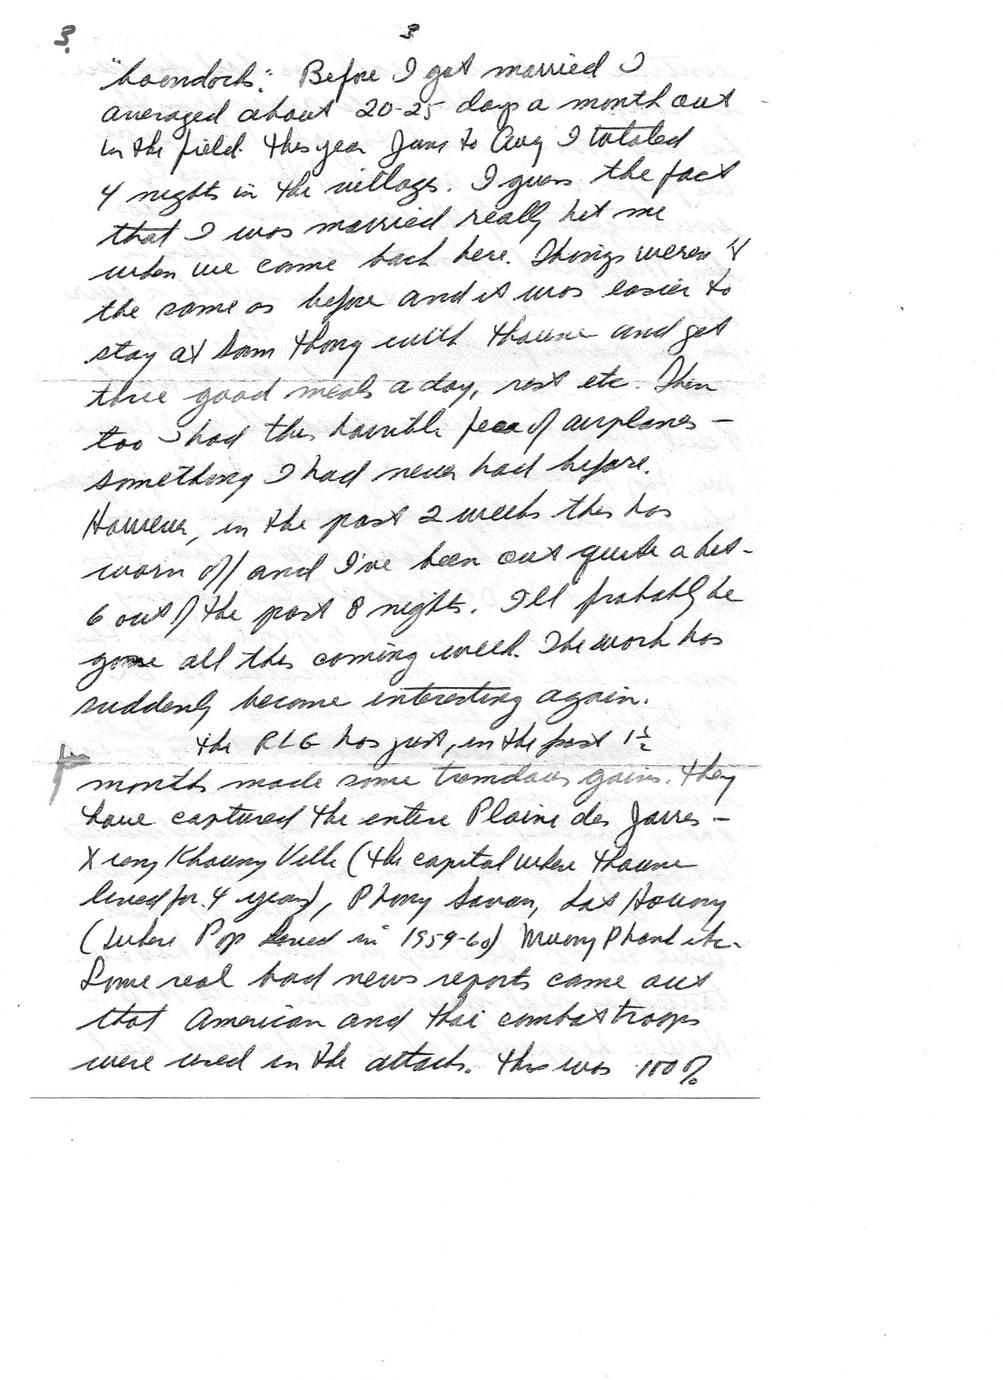 3.
3.
"boondocks." Before I got married I
averaged about 20-25 days a month out
in the field. This year June to Aug I totaled
4 nights in the villages. I guess the fact
that I was married really hit me
when we came back here. Things weren't
the same as before and it was easier to
stay at Sam Thong with Thoune and get
three good meals a day, rest etc. Then
too I had this horrible fear of airplanes -
something I had never had before.
However, in the past 2 weeks this has
worn off and I've been out quite a bit -
6 out of the past 8 nights. I'll probably be
gone all this coming week. The work has
suddenly become interesting again.
The RLG has just, in the past 1½
month made some tremdous gains. They
have captured the entire Plaine des Jarres -
Xieng Khouang Ville (the capital where Thoune
lived for 4 years), Phong Savan, Lat Houang
(where Pop lived in 1959-60) Muong Phanh etc.
Some real bad news reports came out
that American and Thai combat troops
were used in the attack. This was 100%